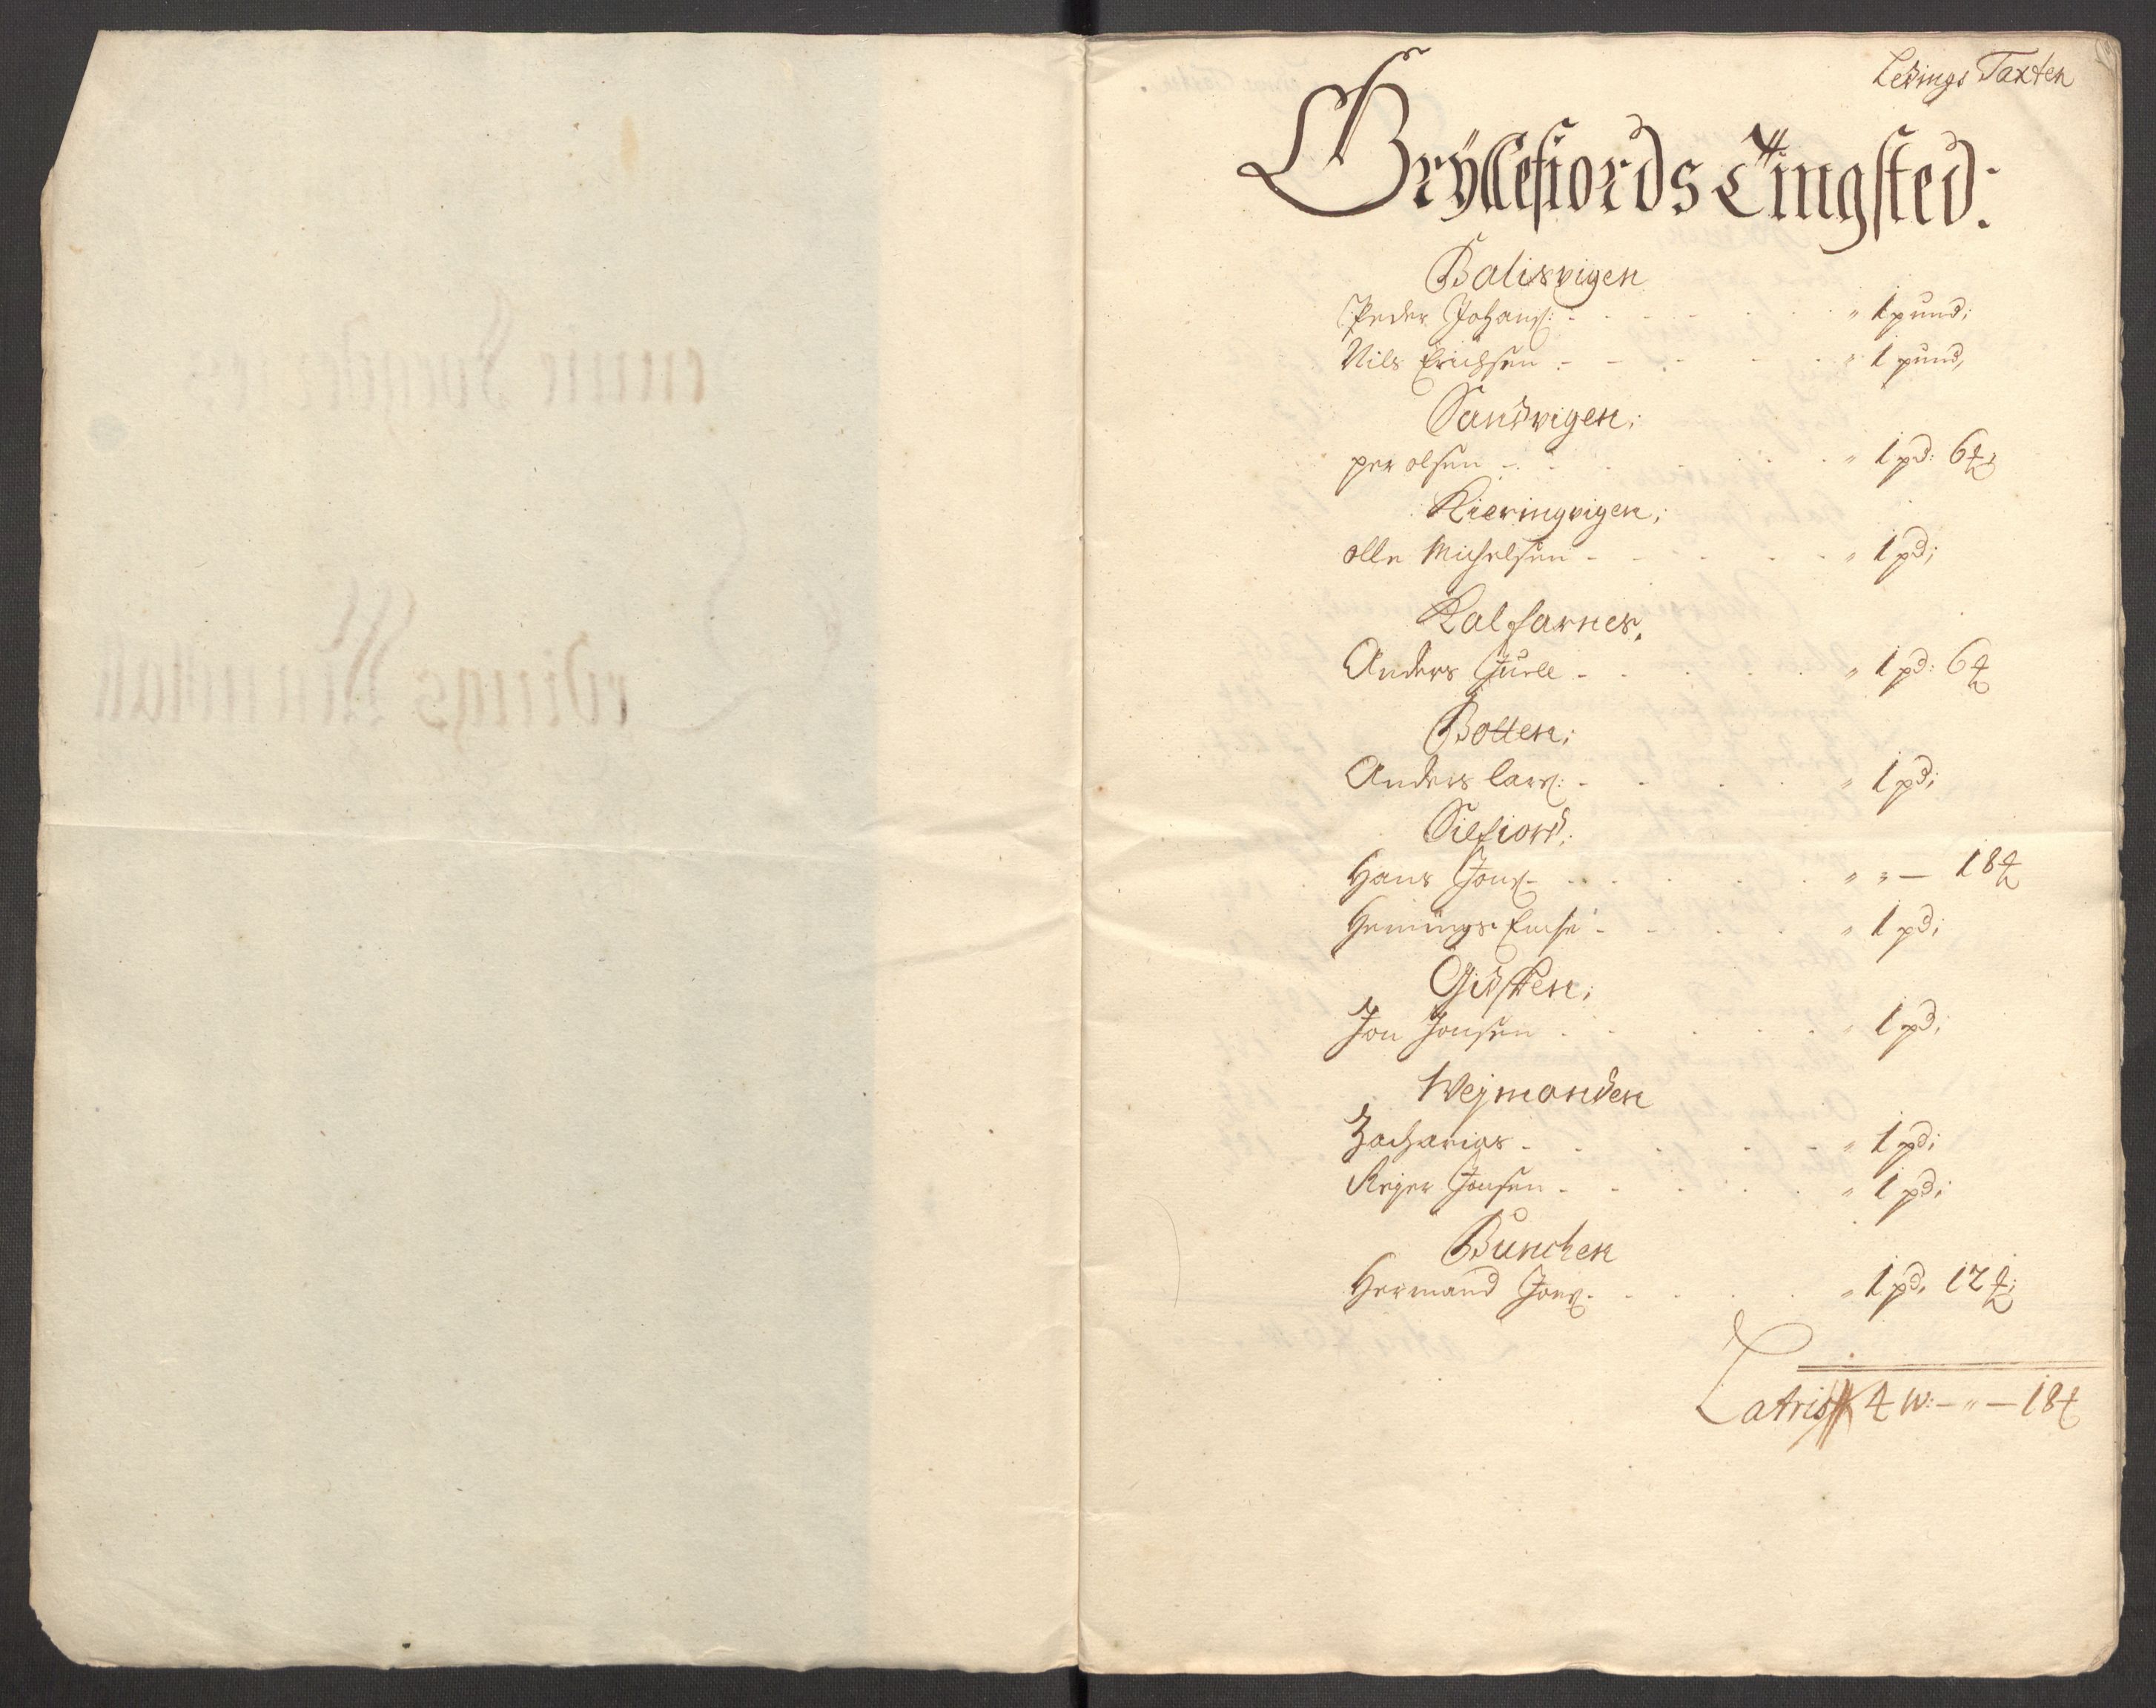 Ledings Taxten
Gryllefiords Tingsted:
Balisvigen
Peder Johans: - - - " 1 pund;
Nils Erichsen - - - " 1 pund,
Sandvigen;
per olsen - - - " 1 pd: 6 ℔;
Kieringvigen;
olle Michelsen - - - " 1 pd;
Kalfarnes,
Anders Juell - - - " 1 pd: 6 ℔
Botten;
Anders Lars: - - - " 1 pd;
Sifiord;
Hans Jons - - - " " — 18 ℔
Hennings - - - " 1 pd;
Gidsken;
Jon Jonsen - - - " 1 pd;
Wejmanden
Zacharias - - - " 1 pd;
Rejer Jonsen - - - " 1 pd;
Bunchen
Hermand Jons - - - " 1 pd, 12 ℔;
Latris 4 W: — " — 18 ℔